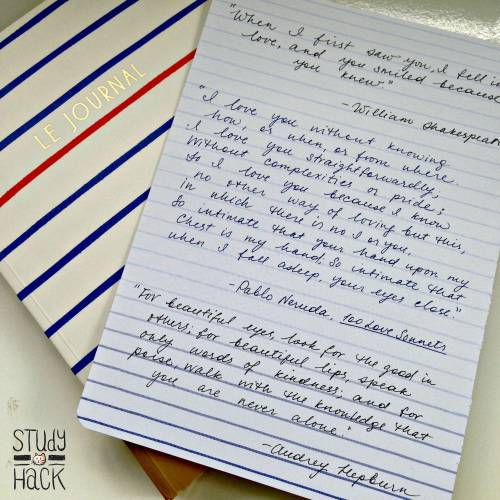 LE JOURNAL
"When I first saw you, I fell in
love, and you smiled because
you knew."
- William Shakespeare
"I love you without knowing
how, or when, or from where.
I love you straightforwardly,
without complexities or pride;
So I love you because I know
no other way of loving but this,
in which there is no I or you,
So intimate that your hand upon my
chest is my hand. So intimate that
when I fall asleep, your eyes close."
- Pablo Neruda, 100 Love Sonnets
"For beautiful eyes, look for the good in
others; for beautiful lips, speak
only words of kindness; and for
poise, walk with the knowledge that
you are never alone."
- Audrey Hepburn
STUDY
HACK